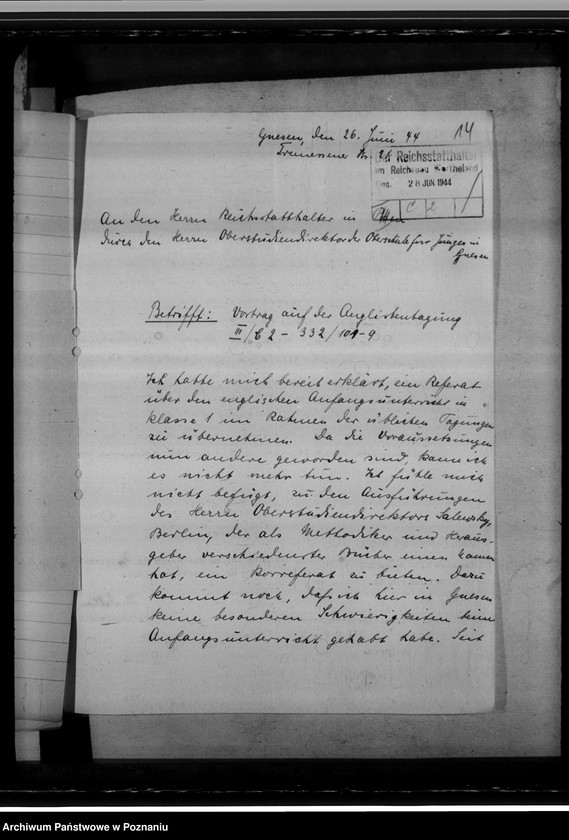 14
Gnesen, den 26. Juni 44
Tremessener Str. 26
Der Reichsstatthalter
im Reichsgau Wartheland
Eing. 28 JUN 1944
C 2
An den Herrn Reichsstatthalter in Posen
durch den Herrn Oberstudiendirektor der Oberschule für Jungen in
Gnesen
Betrifft: Vortrag auf der Anglistentagung
III/C 2 - 332/101-9
Ich hatte mich bereit erklärt, ein Referat
über den englischen Anfangsunterricht in
Klasse 1 im Rahmen der üblichen Tagungen
zu übernehmen. Da die Voraussetzungen
nun andere geworden sind, kann ich
es nicht mehr tun. Ich fühle mich
nicht befugt, zu den Ausführungen
des Herrn Oberstudiendirektors Salewsky,
Berlin, der als Methodiker und Heraus-
geber verschiedenster Bücher einen Namen
hat, ein Korreferat zu bieten. Dazu
kommt noch, daß ich hier in Gnesen
keine besonderen Schwierigkeiten beim
Anfangsunterricht gehabt habe. Seit
Archiwum Państwowe w Poznaniu